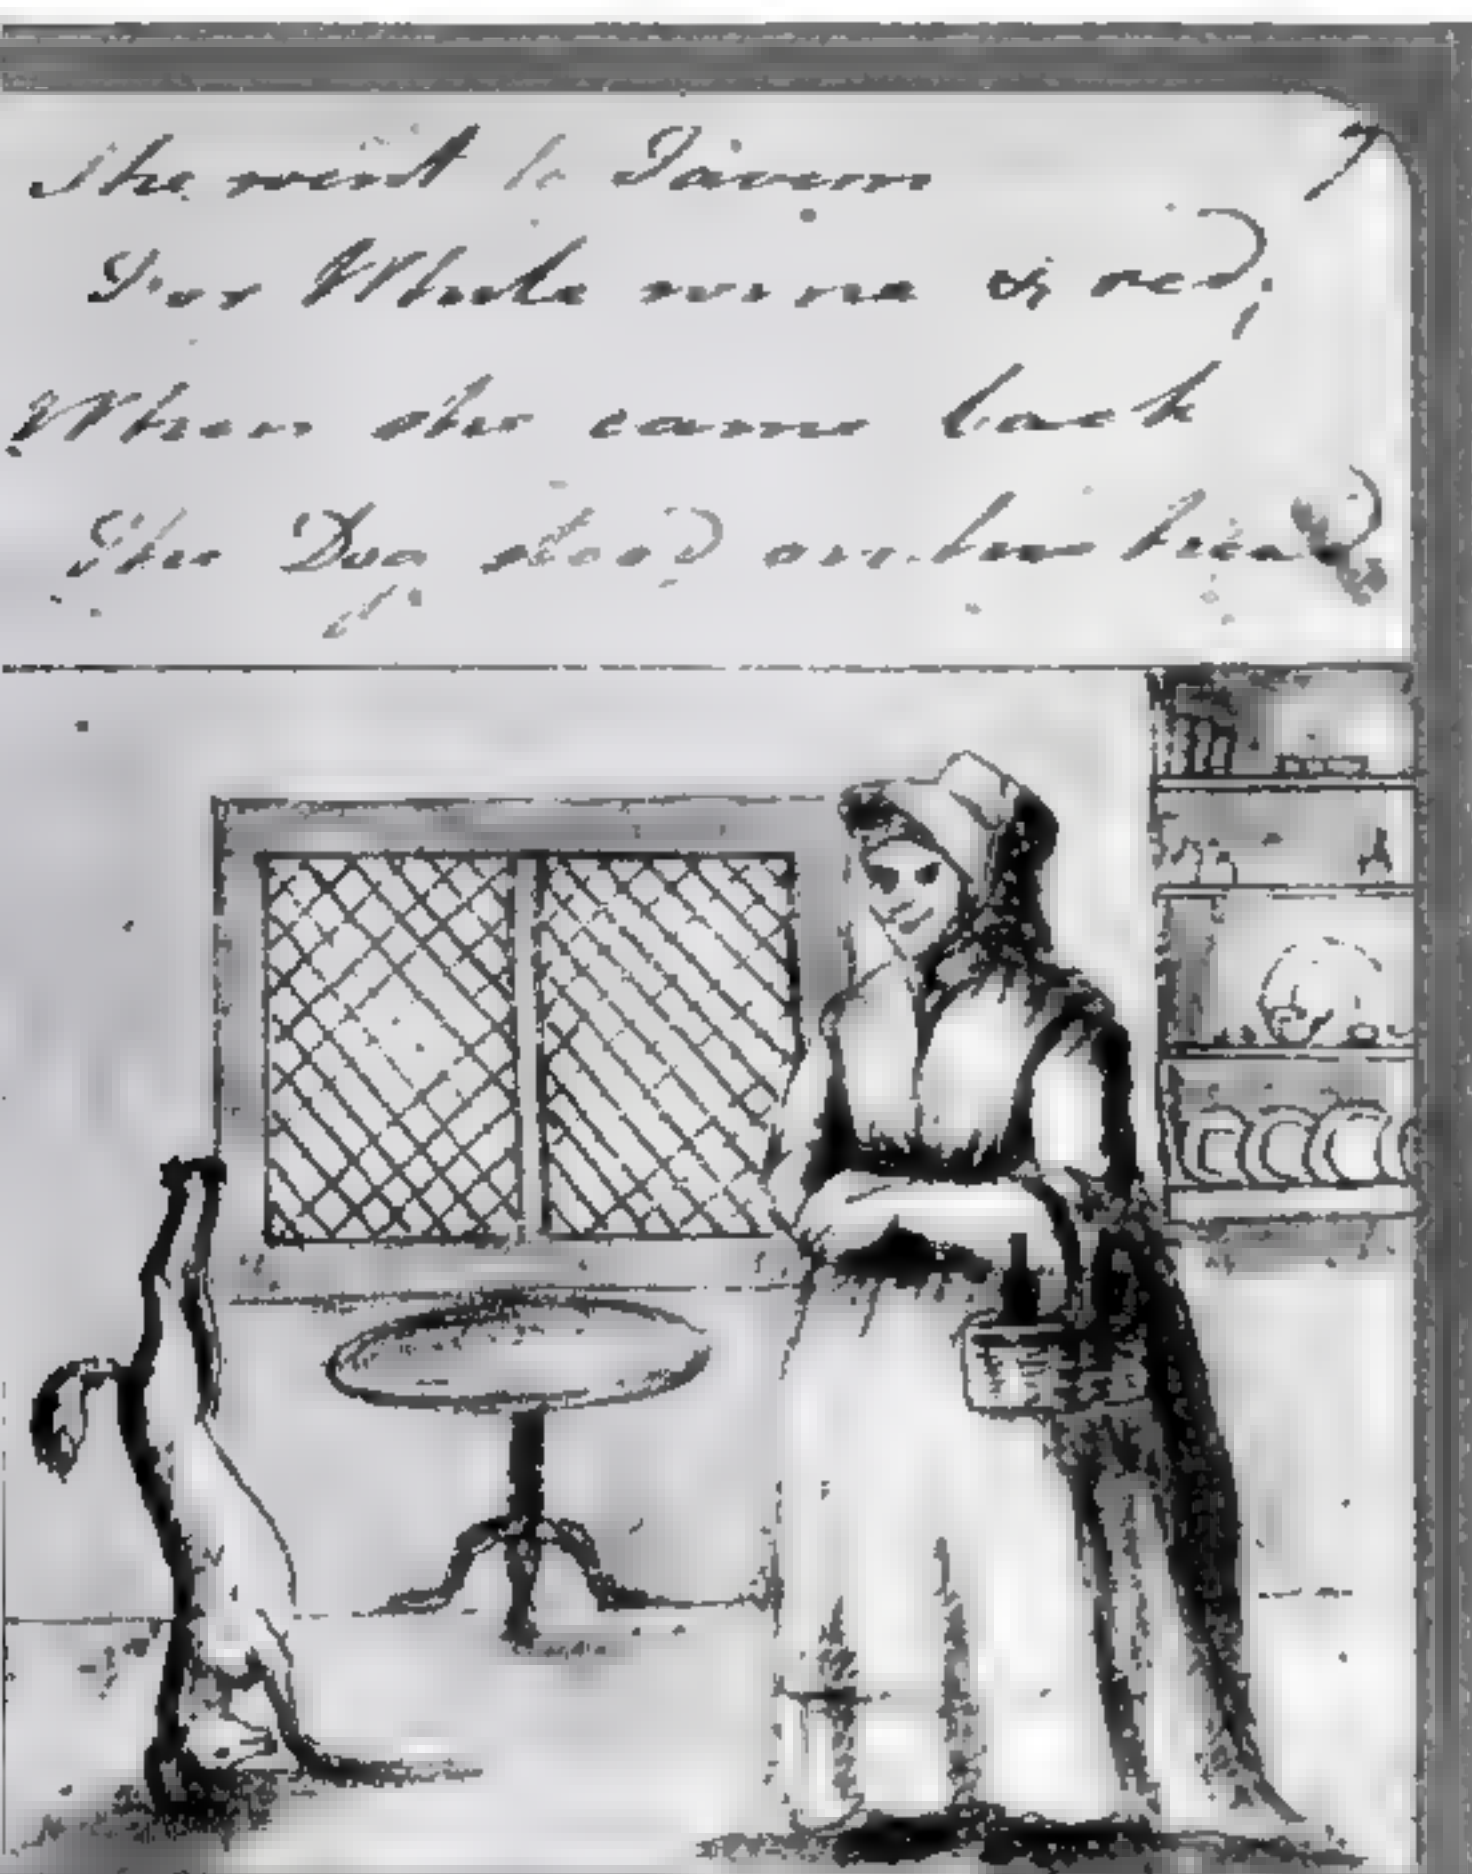 She went to Tavern 7
For White wine & red,
When she came back
The Dog stood on his head